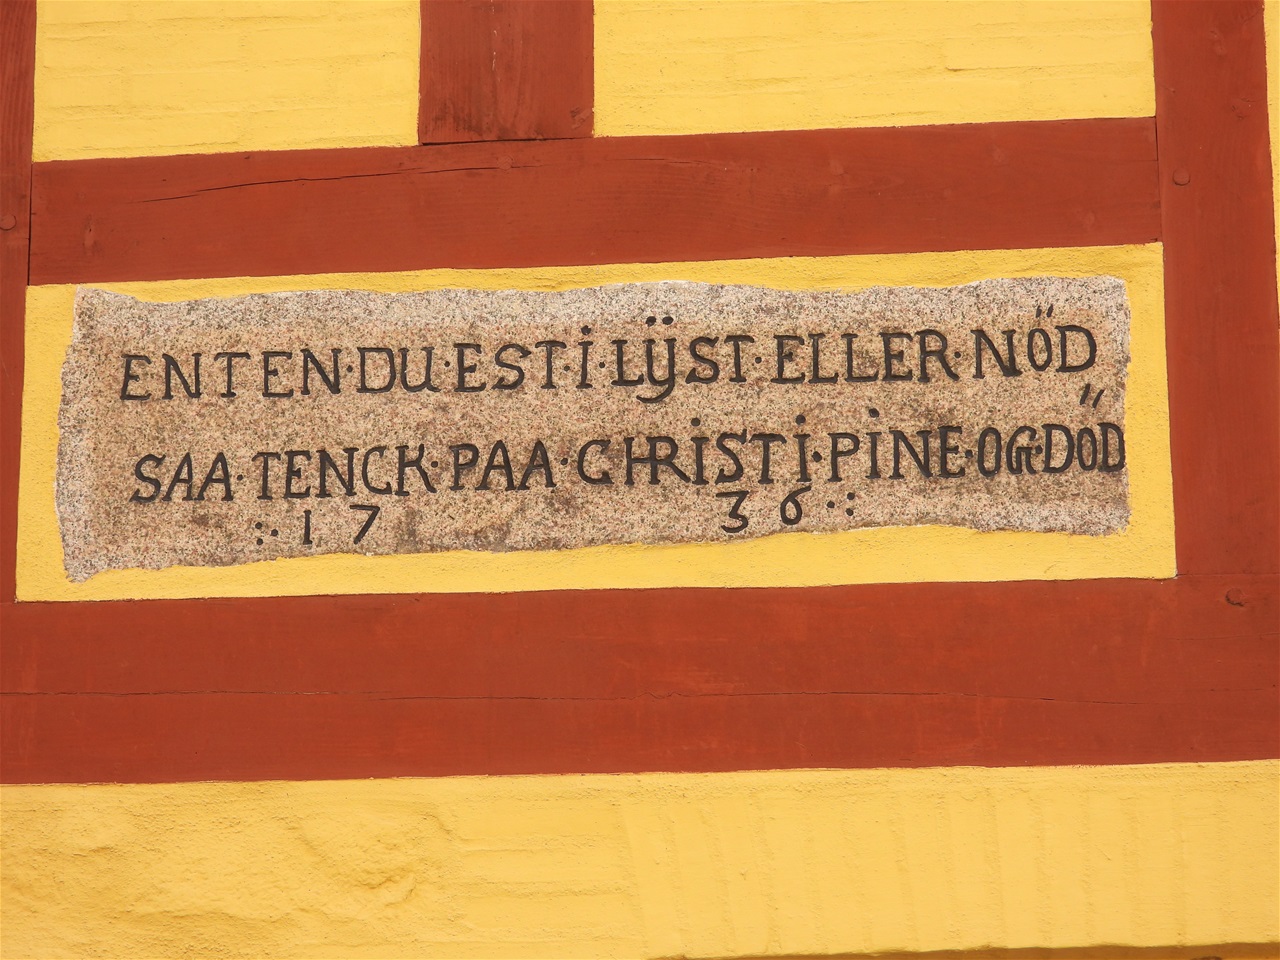 ENTEN·DU·EST·i·LÿST·ELLER·NÖD
SAA·TENCK·PAA·CHRiSTi·PiNE·OG·DÖD
:·17 36·: